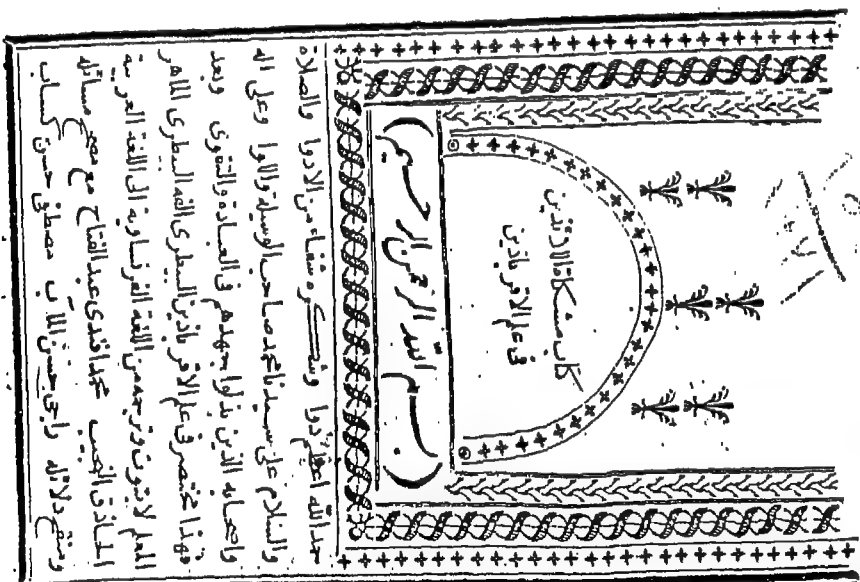 كتاب مشكاة اللائذين
فى علم الاقرباذين
(بسم الله الرحمن الرحيم)
حمد الله اعظم دوا وشكره شفاء من الادوا والصلاة
والسلام على سيدنا محمد صاحب الوسيلة واللوا وعلى اله
واصحابه الذين بذلوا جهدهم فى العبادة والتقوى وبعد
فهذا مختصر فى علم الاقرباذين البيطرى الفه البيطرى الماهر
المعلم لابتوت وترجمه من اللغة الفرنساوية الى اللغة العربية
الحاذق النجيب محمد افندى عبد الفتاح مع مصحح مسائله
ومنقح دلائله راجى حسن المآب مصطفى حسن كساب